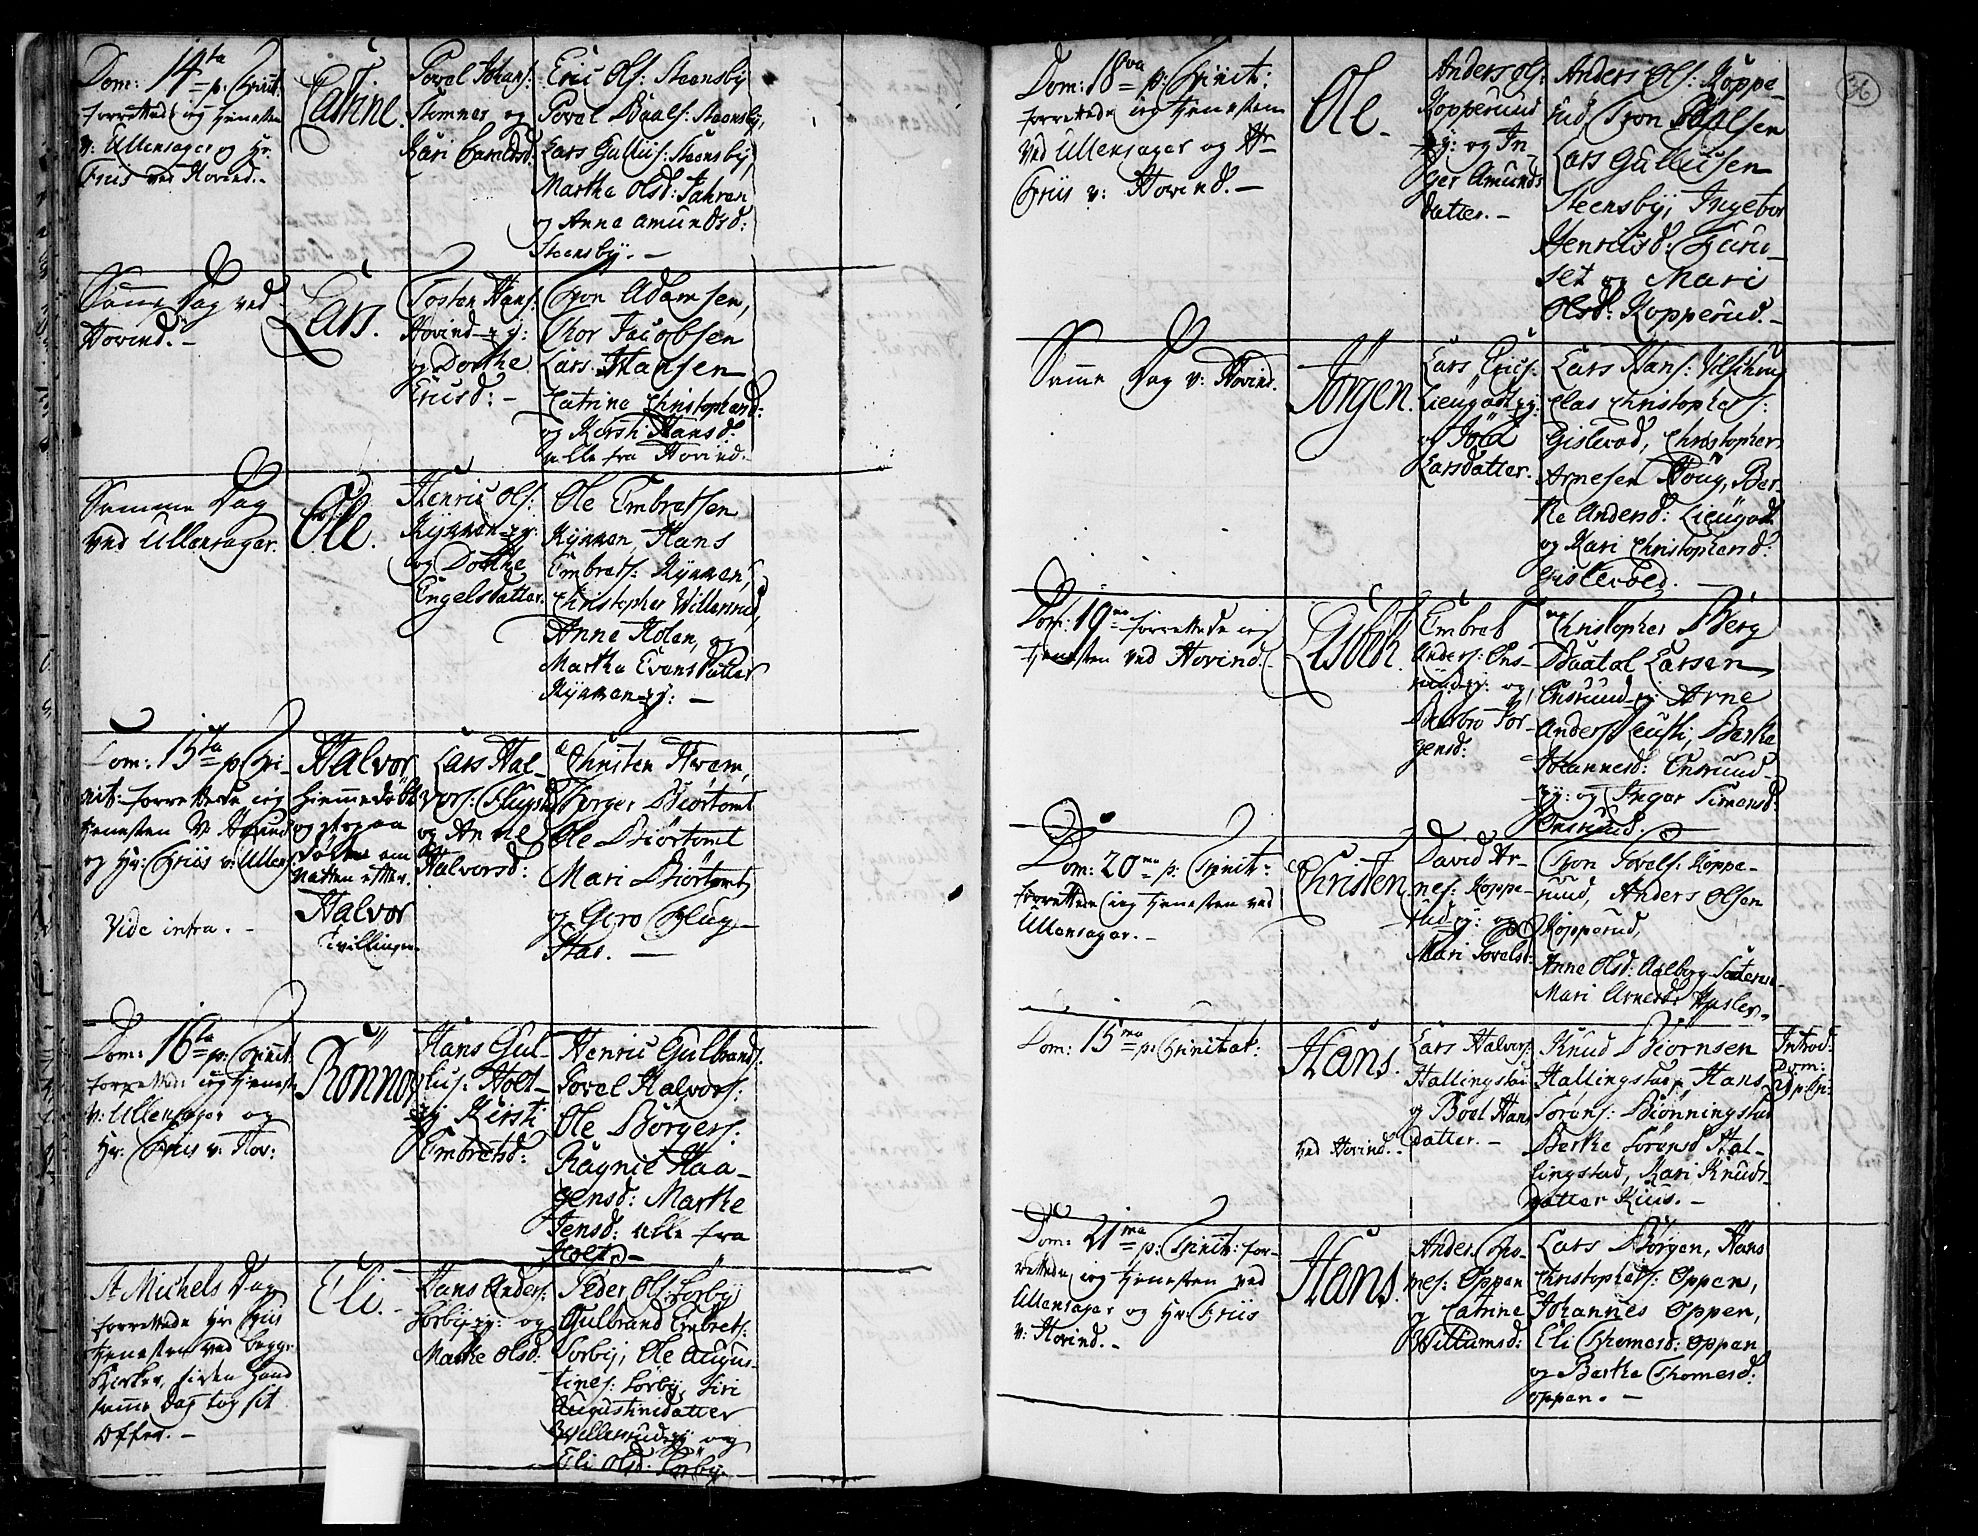 Dom: 14ta p: Trinit:
forrettede ieg tienesten
v: Ullensager og Hr:
Friis ved Hovind.-
Catrine.
Povel Johans:
Stomner og
Kari
Eric Ols: Steensby
Povel Paals: Steensby,
Lars Gullus: Steensby,
Marthe Olsd: Jahren
og Anne Amundsd:
Steensby.-
Samme Dag ved
Hovind.-
Lars.
Tosten Hans:
Hovind-ey:
og Dorthe
Ericsd:-
Tron Adamsen,
Thor Jacobsen
Lars Hansen
Catrine Christophersd:
og Kirsti Hansd:
alle fra Hovind.-
Samme Dag
ved Ullensager.
Ole.
Henric Ols:
Kynnen-ey:
og Dorthe
Engelsdatter.
Ole Embretsen
Kynnen, Hans
Embrets: Kynnen,
Christopher Willersrud,
Anne Holen, og
Marthe Evensdatter
Kynnen-ey:-
Dom: 15ta p: Tri-
nit: forrettede ieg
tienesten v: Hovind
og Hr: Friis v: Ullens:
Vide infra.-
Halvor
hiemmedøbt
og
døde om
natten efter.
Halvor
Tvillinger
Lars Hal-
vors:
og Anne
Halvorsd:
Christen Hvam,
Børger Biørtomt
Ole Biørtomt
Mari Biørtomt
og Gøro Flug-
stad.-
Dom: 16ta p: Trinit:
forrettede ieg tieneste
v: Ullensager og
Hr: Friis v: Hov:
Rønnov
Hans Gul-
lus: Holt-
ey Kirsti
Embretsd:
Henric Gulbrands:
Povel Halvors:
Ole Børgers:
Ragnil Haa-
gensd: Marthe
Jensd: alle fra
Holt.-
St Michels Dag
forrettede Hr: Friis
tienesten ved begge
Kirker, siden hand
samme Dag tog sit
Offer.-
Eli.-
Hans Anders:
Sørby-ey: og
Marthe Olsd:
Peder Ols: Sørby,
Gulbrand Embrets:
Sørby, Ole Augus-
tines: Sørby, Siri
Augustinsdatter
Willersrud-ey og
Eli Olsd: Sørby.
56
Dom: 18va p: Trinit:
forrettede ieg tienesten
ved Ullensager og Hr
Friis v: Hovind.-
Ole.
Anders Ols:
Kopperud
ey: og In-
ger Amunds
datter.-
Anders Ols: Koppe-
rud, Tron Paalsen
Lars Gullusen
Steensby, Ingebor
Henricsd: Furu-
set og Mari
Olsd: Kopperud.-
Samme Dag v: Hovind.
Jørgen.
Lars Erics:
Lieugodt-ey:
og
Larsdatter.
Lars Hans:
Clas Christophers:
Gislevod, Christopher
Arnesen Houg, Ber-
the Andersd: Lieugodt
og Kari Christophersd:
Gislevoed.
Dom: 19na forrettede ieg
tienesten ved Hovind.
Lisbeth
Embret
Anders: Ens-
ruud-ey: og
Barbro Jør-
gensd:
Christopher Berg
Baatol Larsen
Ensruud-ey: Arne
Anders: Berthe
Johannesd: Ensruud-
ey: og Inger Simensd:
Ensruud.
Dom: 20ma p: Trinit:
forrettede ieg tienesten ved
Ullensager.-
Christen
David Ar-
nes: Koppe-
rud-ey: og
Mari Povelsd:
Tron Povels: Koppe-
ruud, Anders Olsen
Kopperud,
Anne Olsd: Aalberg
Mari Arnesd: Hasler.
Dom: 15ma p: Trinitat:
Hans.
ved Hovind.-
Lars Halvors:
Hallingstad
og Boel Hans
datter.-
Knud Biørnsen
Hallingstad, Hans
Sørens: Biønningstad
Berthe Sørensd: Hal-
lingstad, Kari Knuds-
datter Kius.-
Introd:
Dom:
Dom: 21ma p: Trinit: for-
rettede ieg tienesten ved
Ullensager og Hr: Friis
v: Hovind.-
Hans.
Anders Tho-
mes: Oppen
og Catrine
Willumsd:
Lars Børgen, Hans
Christophers: Oppen,
Johannes Oppen,
Eli Thomesd: Oppen
og Berthe Thomesd:
Oppen.-